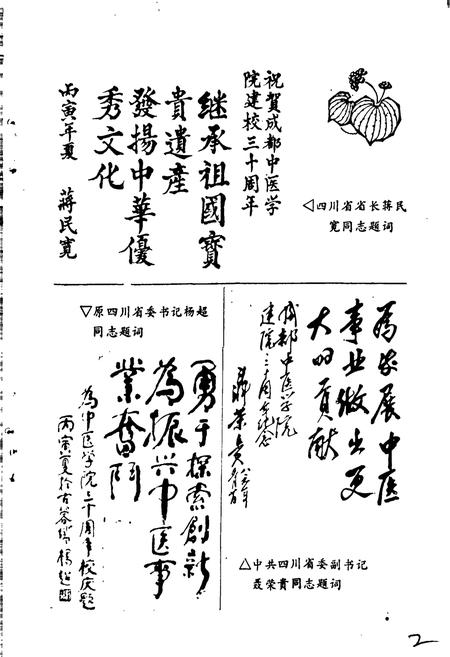 祝賀成都中医学
院建校三十周年
継承祖國寳
貴遺産
發揚中華優
秀文化
丙寅年夏 蔣民寛
◁四川省省长蒋民
宽同志题词
▽原四川省委书记杨超
同志题词
勇于探索創新
為振兴中医事
業奮鬥
為中医学院三十周年校庆题
丙寅夏於古蓉城楊超
為发展中医
事业做出更
大的貢献
成都中医学院
建院三十周年纪念
聂荣贵
△中共四川省委副书记
聂荣贵同志题词
2